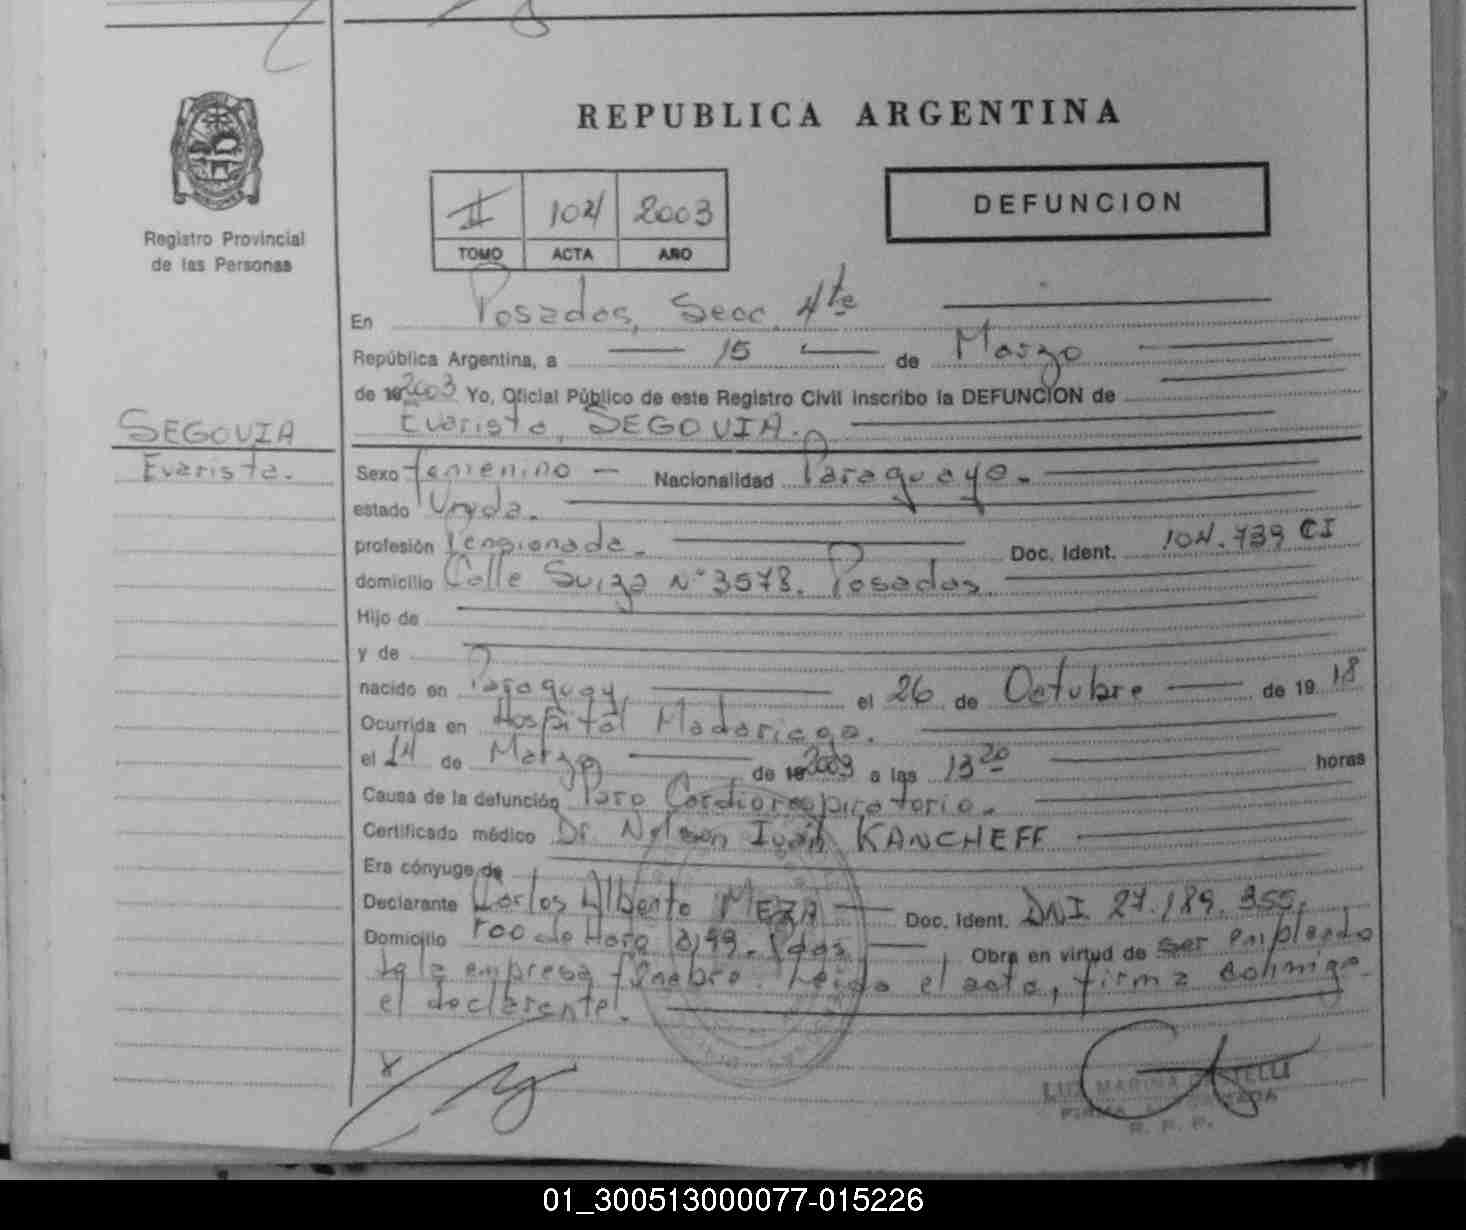 REPUBLICA ARGENTINA
Registro Provincial
de las Personas
II 104 2003
TOMO ACTA AÑO
DEFUNCION
En Posadas, Secc. 4te
República Argentina, a 15 de Marzo
de 19 2003 Yo, Oficial Público de este Registro Civil inscribo la DEFUNCION de
Evarista, SEGOVIA.
SEGOVIA
Evarista.
Sexo femenino - Nacionalidad Paraguaya.
estado Viuda.
profesión Pensionada. Doc. Ident. 104.739 CI
domicilio Calle Suiza N° 3578. Posadas
Hijo de
y de
nacido en Paraguay el 26 de Octubre de 19 18
Ocurrida en Hospital Madariaga.
el 14 de Marzo de 19 2003 a las 13 20 horas
Causa de la defunción Paro Cardiorrespiratorio.
Certificado médico Dr. Nelson Iván KANCHEFF
Era cónyuge de
Declarante Carlos Alberto MEZA Doc. Ident. DNI 27.189.355.
Domicilio Roo de Hora Pdas. Obra en virtud de ser empleado
de la empresa fúnebre. Leida el acta, firma conmigo
el declarante.
x
LUZ MARINA
FIRMA
R. P. P.
01_300513000077-015226